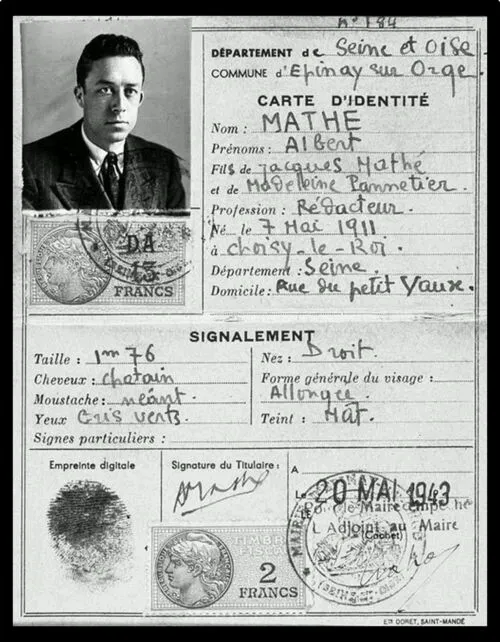 N° 184
DÉPARTEMENT de Seine et Oise
COMMUNE d'Epinay sur Orge
CARTE D'IDENTITÉ
Nom : MATHE
Prénoms : Albert
Fils de Jacques Mathé
et de Madeleine Pannetier.
Profession : Rédacteur.
Né le 7 Mai 1911
à Choisy-le-Roi.
Département : Seine.
Domicile : Rue du petit Vaux.
DA
13
FRANCS
SIGNALEMENT
Taille : 1m 76
Cheveux : chatain
Moustache : néant
Yeux Gris verts.
Signes particuliers :
Nez : Droit.
Forme générale du visage :
Allongée
Teint : Mat.
Empreinte digitale
Signature du Titulaire :
A
Le 20 MAI 1943
LE
Pour le Maire empêché
L'Adjoint au Maire
(Cachet)
TIMBRE
FISCAL
2
FRANCS
MAIRIE
Ets DORET, SAINT-MANDÉ